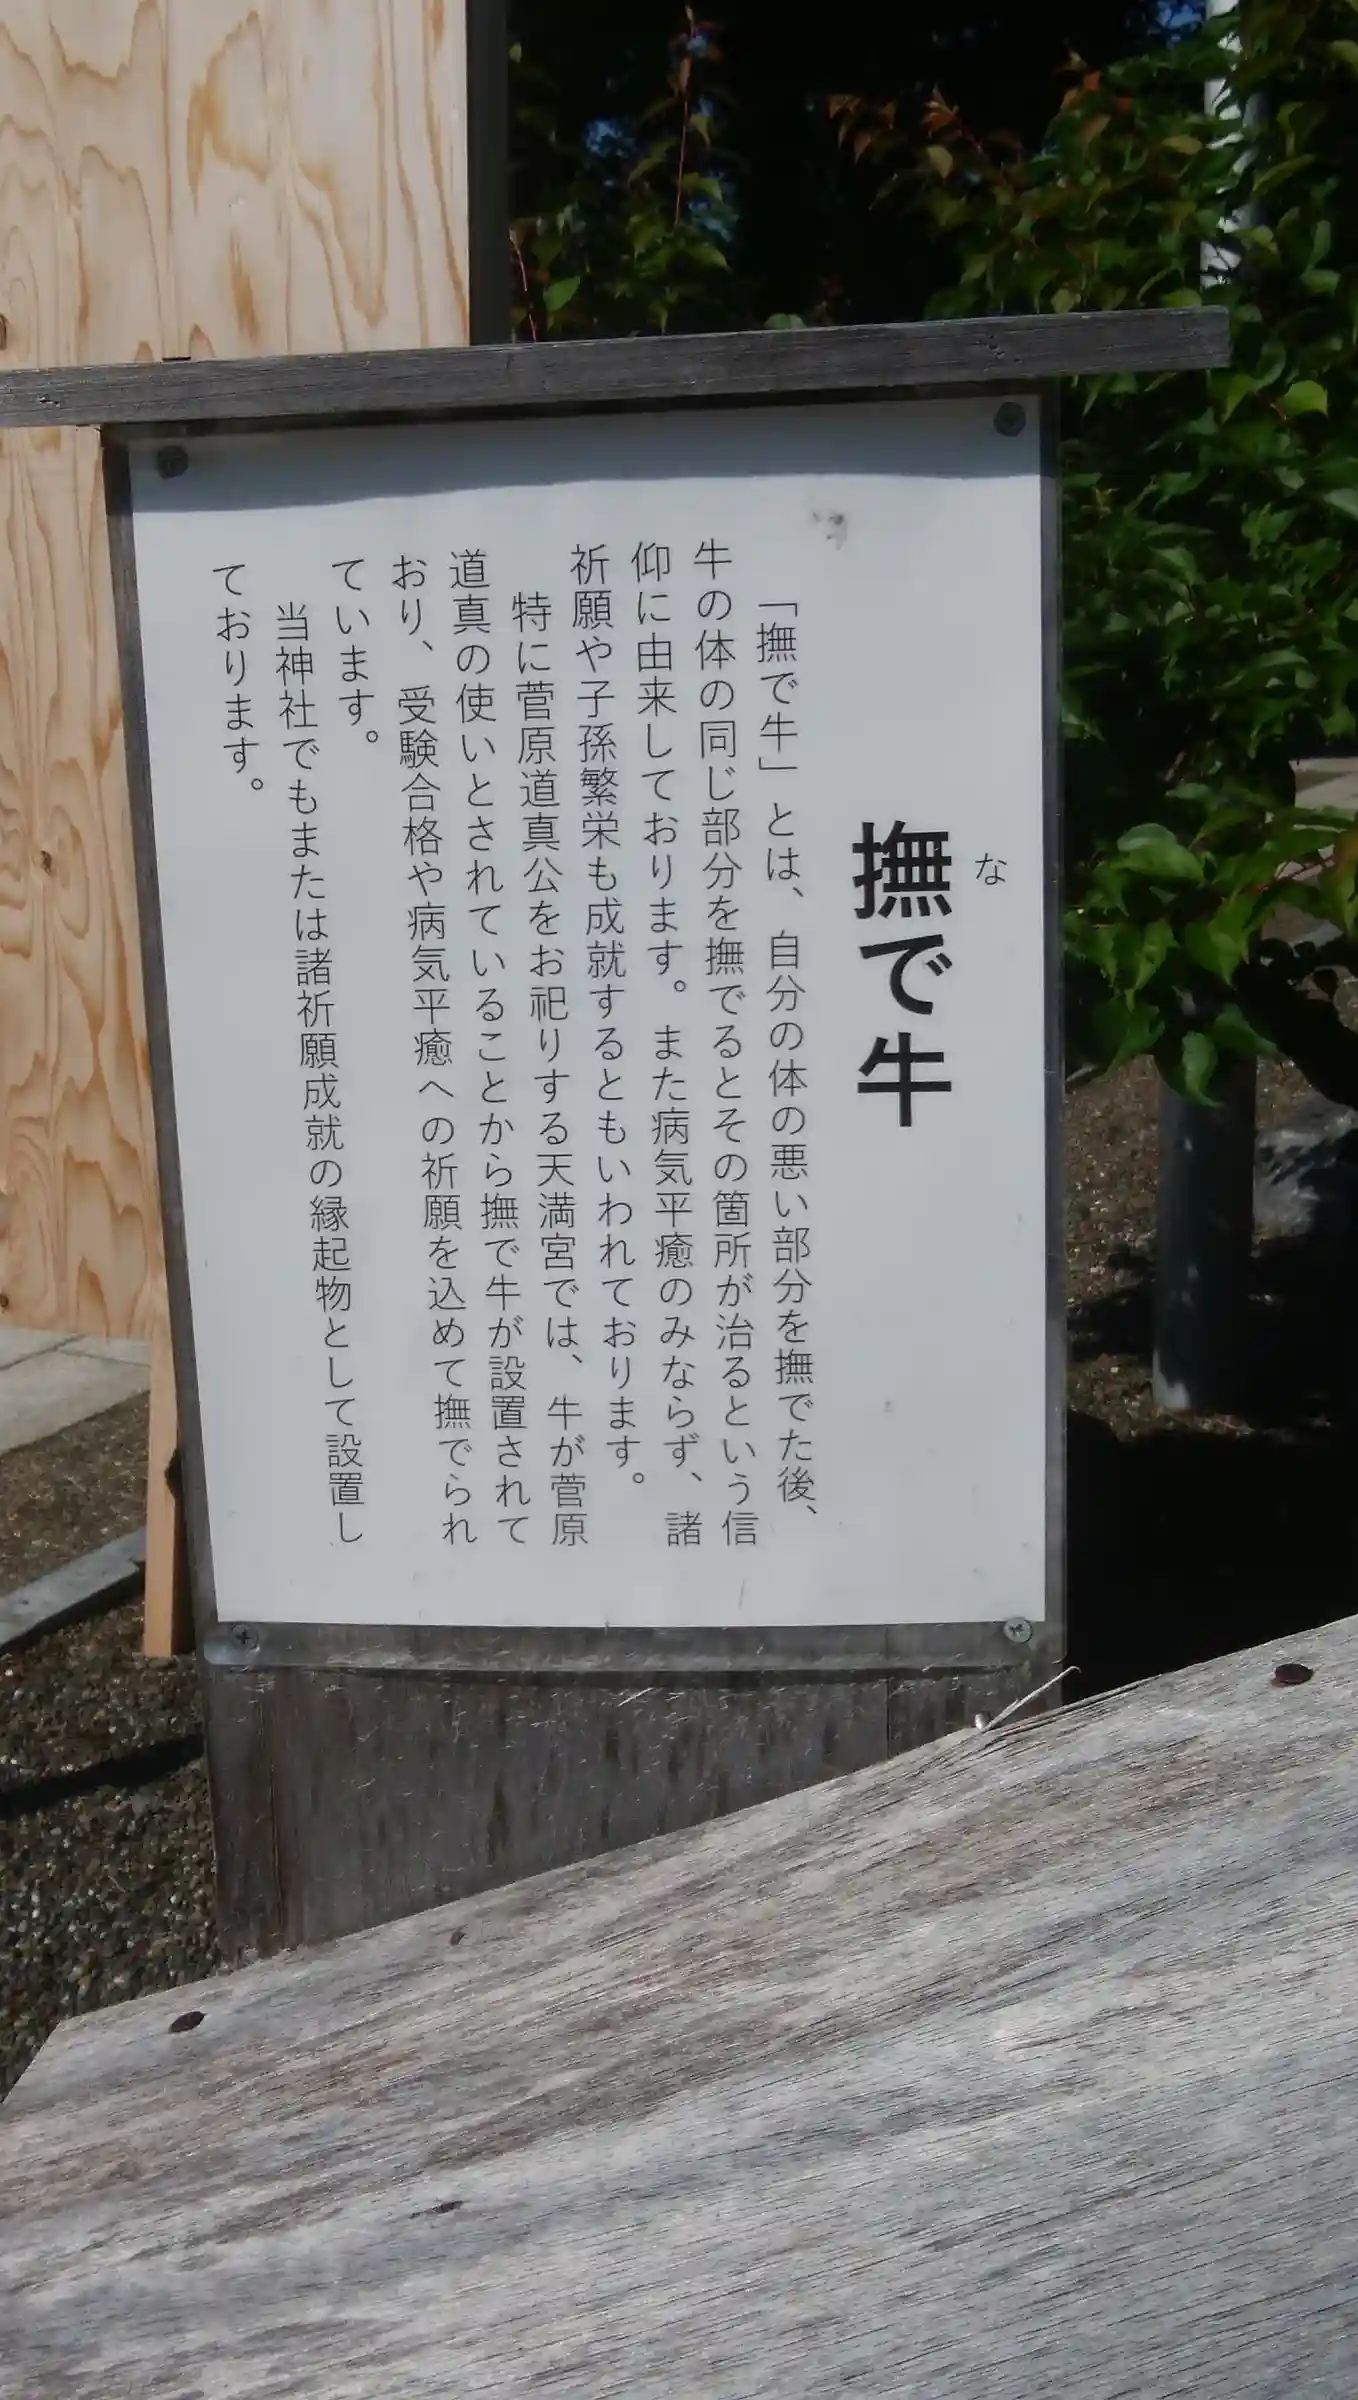 な
撫で牛
「撫で牛」とは、自分の体の悪い部分を撫でた後、
牛の体の同じ部分を撫でるとその箇所が治るという信
仰に由来しております。また病気平癒のみならず、諸
祈願や子孫繁栄も成就するともいわれております。
特に菅原道真公をお祀りする天満宮では、牛が菅原
道真の使いとされていることから撫で牛が設置されて
おり、受験合格や病気平癒への祈願を込めて撫でられ
ています。
当神社でもまたは諸祈願成就の縁起物として設置し
ております。